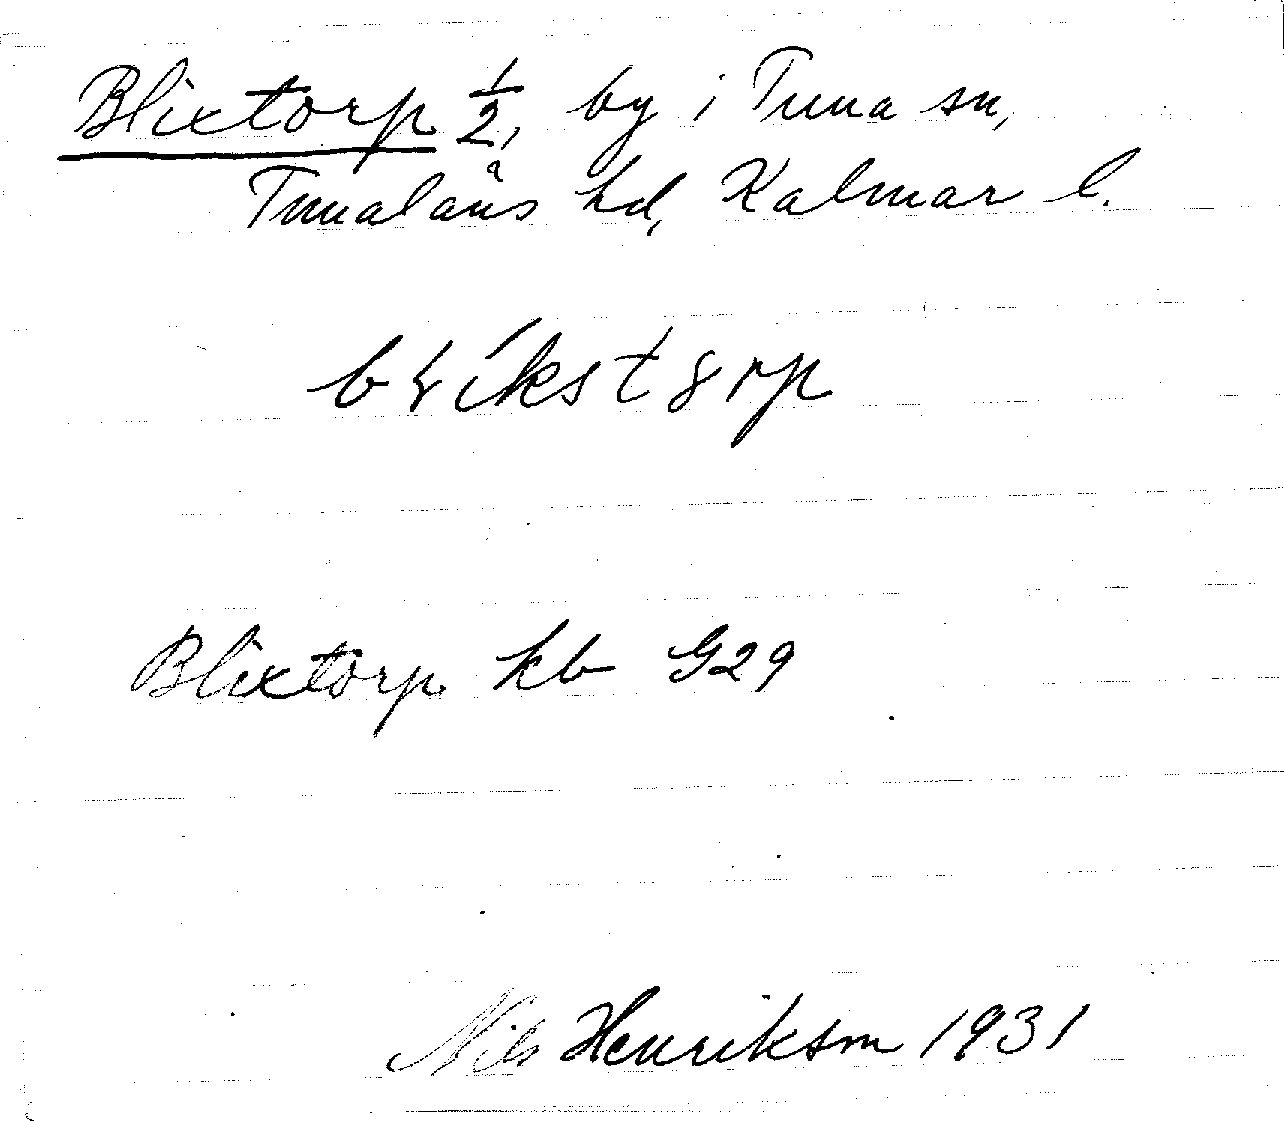 Blixtorp 1/2, by i Tuna sn,
Tunaläns hd, Kalmar l.
błíkstȣrp
Blixtorp kb G29
Nils Henrikson 1931